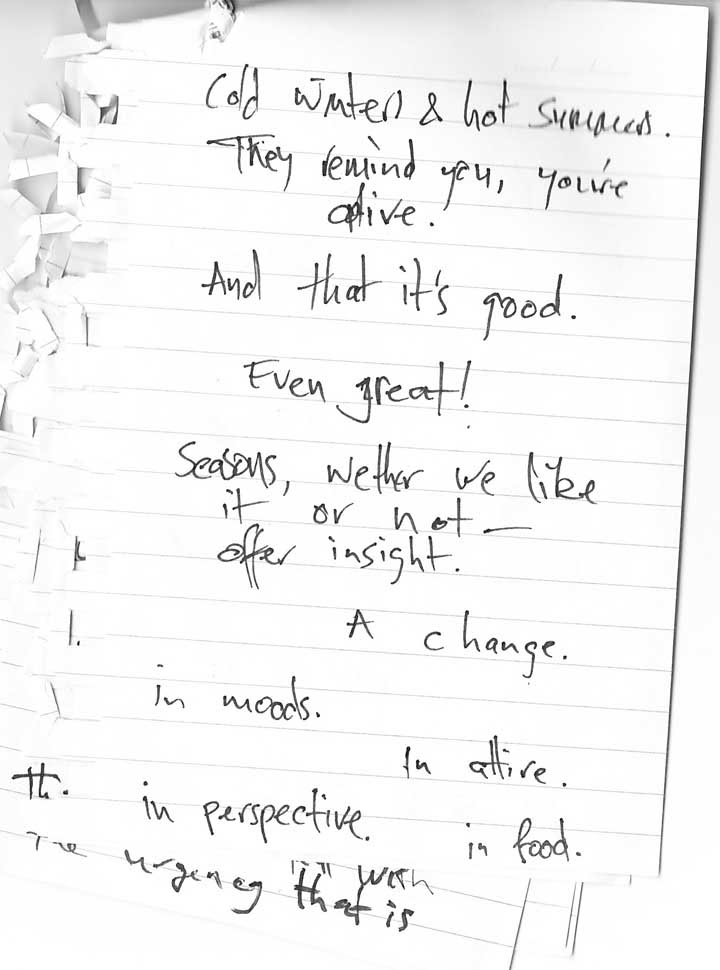 Cold Winters & hot Summers.
They remind you, you're
alive.
And that it's good.
Even great!
Seasons, wether we like
it or not —
offer insight.
A change.
in moods.
In attire.
in perspective.
in food.
The urgency that is